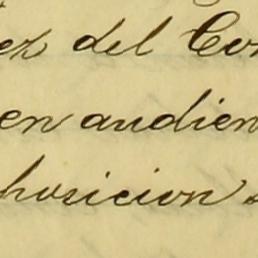 ez del Co
en audien
posicion